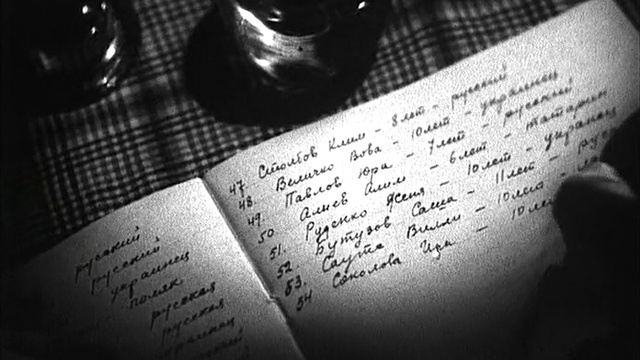 русский
русский
украинец
поляк
русская
русская
украинец
47. Столбов Клим - 8 лет - русский
48. Величко Вова - 10 лет - украинец
49. Павлов Юра - 7 лет - русский
50. Алиев Алим - 6 лет - татарин
51. Руденко Ясеня - 10 лет - украинец
52. Бутузов Саша - 11 лет -
53. Саута Вилли - 10 лет -
54 Соколова Ира - 10 лет